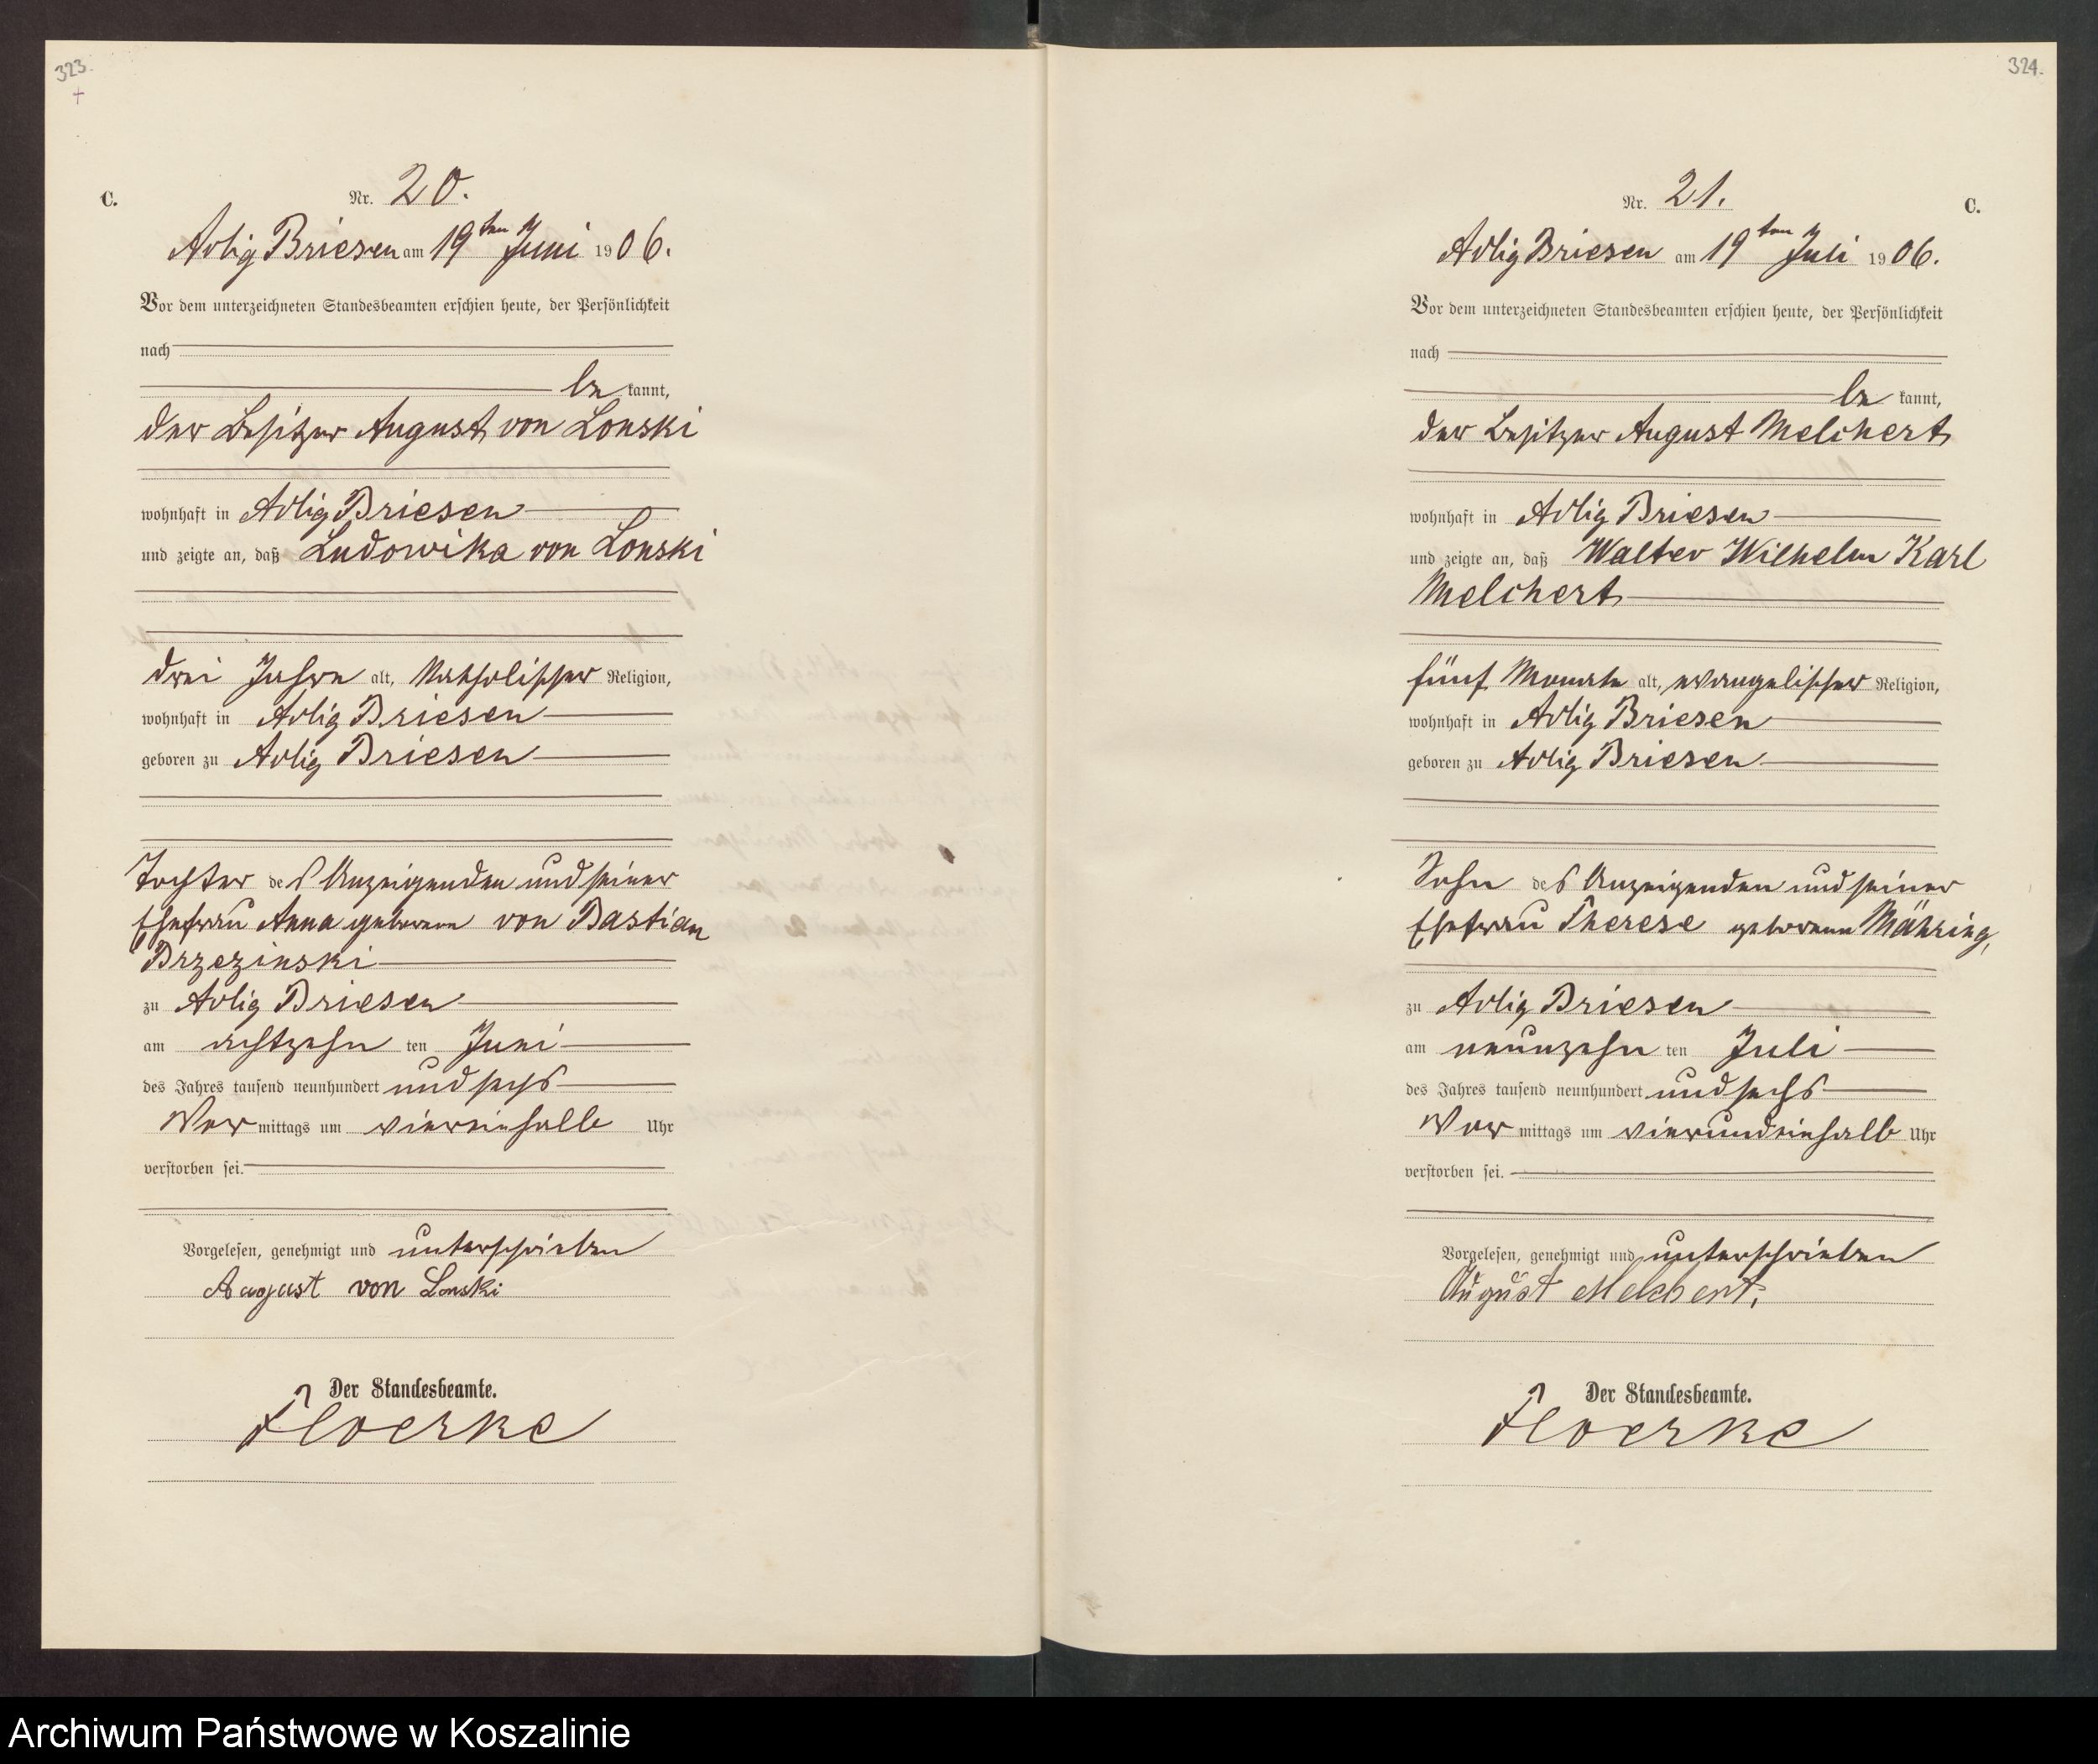 323.
+
C.
Nr. 20.
Adlig Briesen am 19ten Juni 1906.
Vor dem unterzeichneten Standesbeamten erschien heute, der Persönlichkeit
nach
be kannt,
der Besitzer August von Lonski
wohnhaft in Adlig Briesen
und zeigte an, daß Ludowika von Lonski
drei Jahre alt, katholischer Religion,
wohnhaft in Adlig Briesen
geboren zu Adlig Briesen
Tochter des Anzeigenden und seiner
Ehefrau Anna geborene von Bastian
Brzezinski
zu Adlig Briesen
am achtzehn ten Juni
des Jahres tausend neunhundert und sechs
Vor mittags um viereinhalb Uhr
verstorben sei.
Vorgelesen, genehmigt und unterschrieben
August von Lonski
Der Standesbeamte.
Floerke
324.
C.
Nr. 21.
Adlig Briesen am 19ten Juli 1906.
Vor dem unterzeichneten Standesbeamten erschien heute, der Persönlichkeit
nach
be kannt,
der Besitzer August Melchert
wohnhaft in Adlig Briesen
und zeigte an, daß Walter Wilhelm Karl
Melchert
fünf Monate alt, evangelischer Religion,
wohnhaft in Adlig Briesen
geboren zu Adlig Briesen
Sohn des Anzeigenden und seiner
Ehefrau Therese geborene Mähring,
zu Adlig Briesen
am neunzehn ten Juli
des Jahres tausend neunhundert und sechs
Vor mittags um vierundeinhalb Uhr
verstorben sei.
Vorgelesen, genehmigt und unterschrieben
August Melchert.
Der Standesbeamte.
Floerke
Archiwum Państwowe w Koszalinie